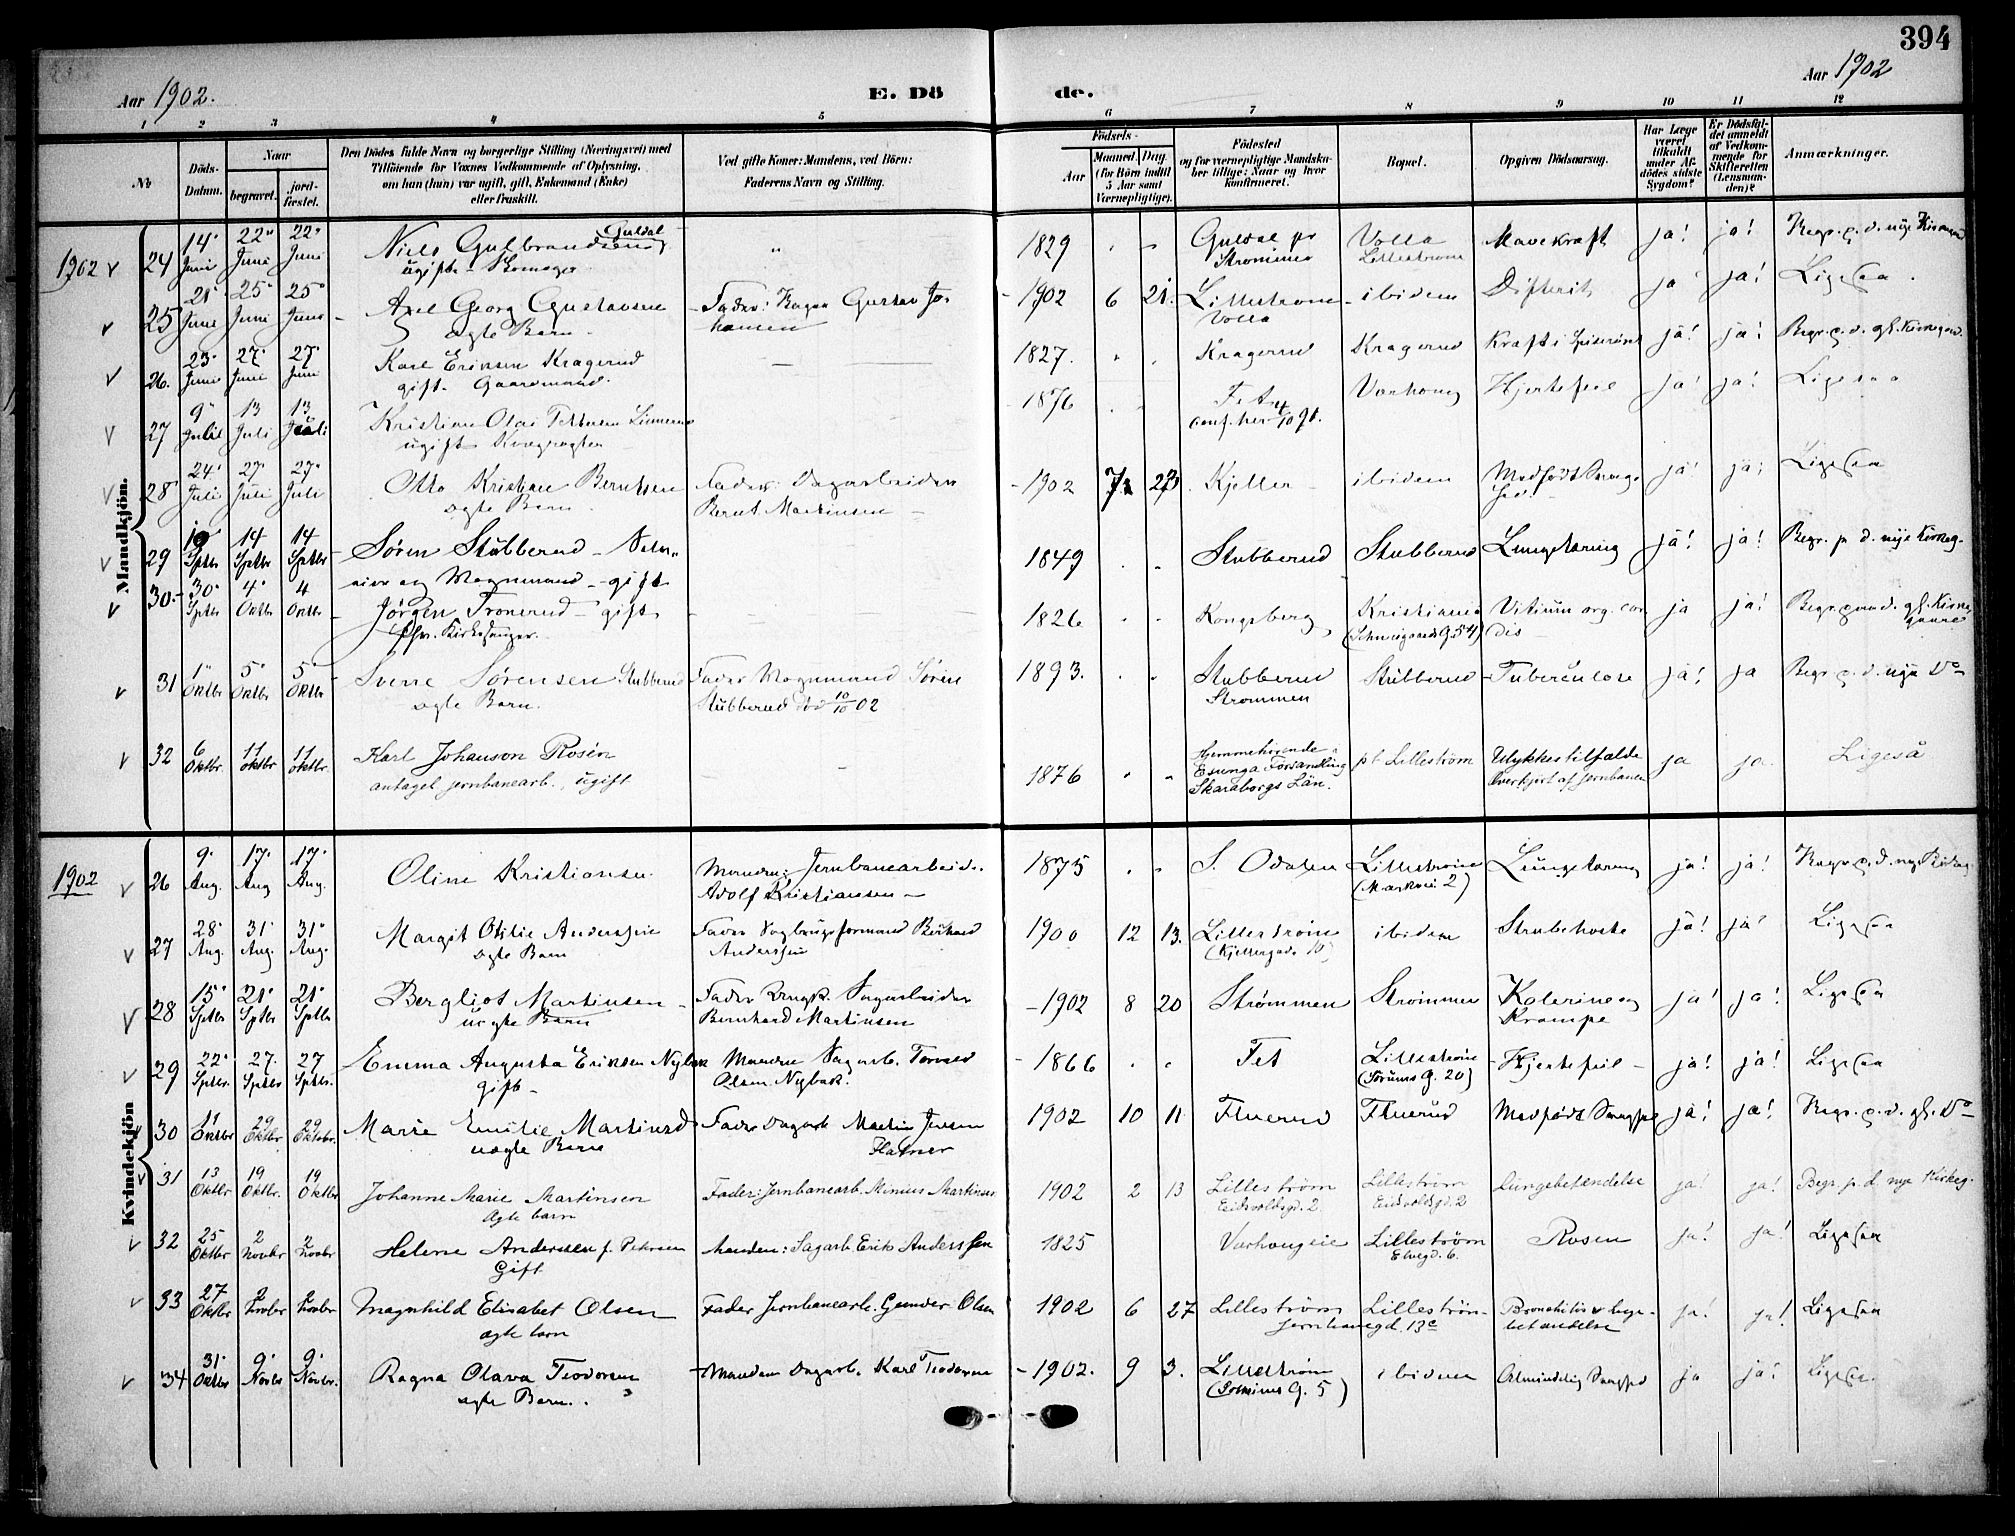 394
Aar 1902.
E. Dö
de.
Aar 1902
1 2 3 4 5 6 7 8 9 10 11 12
No
Döds-
Datum.
Naar
begravet.
jord-
fæstet.
Den Dödes fulde Navn og borgerlige Stilling (Næringsvei) med
Tilföiende for Voxnes Vedkommende af Oplysning,
om han (hun) var ugift, gift, Enkemand (Enke)
eller fraskilt.
Ved gifte Koner: Mandens, ved Börn:
Faderens Navn og Stilling.
Födsels-
Aar
Maaned. Dag
(for Börn indtil
5 Aar samt
Værnepligtige).
Födested
og for værnepligtige Mandska-
ber tillige: Naar og hvor
konfirmeret.
Bopæl.
Opgiven Dödsaarsag.
Har Læge
været
tilkaldt
under Af-
dödes sidste
Sygdom?
Er Dödsfal-
det anmeldt
af Vedkom-
mende for
Skifteretten
(Lensman-
den)?
Anmærkninger.
Mandkjön.
1902 24 14' Juni 22' Juni 22' Juni Niels Gulbrandsen Guldal " 1829 " " Guldal pr Volla Mavekræft ja! ja!
ugift - Strømmen Lillestrøm
25 21' Juni 25' Juni 25' Juni Axel Georg Gustavsen Fader: Gustav Jo- 1902 6 21. Lillestrøm ibidem Difterit ja ja! Ligesaa
ægte Barn hansen Volla
26. 23' Juni 27' Juni 27' Juni Karl Eriksen Kragerud — 1827. " " Kragerud Kragerud Kræft i Spiserøret ja! ja! Begr. p. d. gl. Kirkegrd.
gift. Gaardmand.
27 9' Juli 13 Juli 13 Juli Kristian Olai 1876 " " Fet Varhoug Hjertefeil ja! ja! Ligesaa
ugift
28 24' Juli 27' Juli 27' Juli Otto Kristian Berntsen Fader: Dagarbeider 1902 7 23 Kjeller ibidem Medfødt Svag- ja! ja! Ligesaa
ægte Barn Bernt Martinsen hed.
29 10 Sptbr 14 Sptbr 14 Sptbr Søren Stubberud 1849 " " Stubberud Stubberud Lungetæring ja! ja! Begr. p. d. nye Kirkeg.
og Vognmand - gift
30. 30' Sptbr 4' Oktbr 4 Oktbr Jørgen Tronerud - gift — 1826 " " Kongsberg Kristiania Vitium org. cor ja ja!
Kirkesanger. (Schweigaards G. 54) dis
31 1' Oktbr 5' Oktbr 5' Oktbr Sørensen Stubberud Fader Vognmand Søren 1893. " " Stubberud Stubberud Tuberculose ja! ja Begr. p. d. nye Do
ægte Barn. Stubberud død 10/10 02 Strømmen
32 6 Oktbr 11 Oktbr 11 Oktbr. Karl Johanson Rosén — 1876 " " Hjemmehørende i pt Lillestrøm Ulykkestilfælde ja ja Ligeså
antagel. jernbanearb., ugift Esunga Församling Overkjørt af Jernbanen
Skaraborgs Län.
Kvindekjön
1902 26 9' Aug. 17' Aug 17' Aug. Oline Kristiansen Manden: Jernbanearbeid. 1875 " " S. Odalen Lillestrøm Lungetæring ja! ja!
Adolf Kristiansen (Markvei. 2)
27 28' Aug. 31' Aug. 31' Aug. Margit Otilie Anderssen Fader 1900 12 13. Lillestrøm ibidem Strubehoste ja! ja! Ligesaa
ægte Barn Anderssen (Kjellergad. 10)
28 15' Sptbr 21' Sptbr 21' Sptbr Bergliot Martinsen Fader Sagarbeider 1902 8 20 Strømmen Strømmen Kolerine og ja! ja! Ligesaa
uægte Barn Bernhard Martinsen Krampe
29 22' Sptbr. 27. Sptbr 27 Sptbr. Emma Augusta Eriksen Nybak Manden Sagarb. 1866 " " Fet Lillestrøm Hjertefeil ja! ja! Ligesaa
gift - Olsen Nybak. (Sørums G. 20)
30 11 Oktbr 29 Oktbr 29 Oktobr. Marie Emilie Martinsd Fader Dagarb. Martin Jensen 1902 10 11 Fluerud Fluerud Medfødt Svaghed ja! ja! Begr. p. d. gl. Do
uægte Barn
31 13 Oktbr 19 Oktbr. 19 Oktbr Johanne Marie Martinsen Fader: Jernbanearb. Minius Martinsen 1902 2 13 Lillestrøm Lillestrøm Lungebetændelse ja! ja! Begr. p. d. nye Kirkeg.
Ægte barn Eidsvoldsgd. 2. Eidsvoldsgd. 2
32 25 Oktbr 2 Novbr 2 Novbr Helene Anderssen f. Petersen Manden: Sagarb. Erik Anderssen 1825 Varhougeie Lillestrøm Rosen ja! ja! Ligesaa
Gift Elvegd. 6.
33 27 Oktbr 2 Novbr 2 Novbr Magnhild Elisabet Olsen Fader Jernbanearb. Gunder Olsen 1902 6 27 Lillestrøm Lillestrøm Bronchitis & lunge- ja! ja! Ligesaa
ægte barn Jernbanegd. 13c betændelse
34 31' Oktbr 9' Novbr 9' Novbr. Ragna Olava Teodorsen Manden Dagarb. Karl Teodorsen 1902. 9 3. Lillestrøm ibidem Almindelig Svaghed ja ja! Ligesaa.
ægte Barn. G. 5)